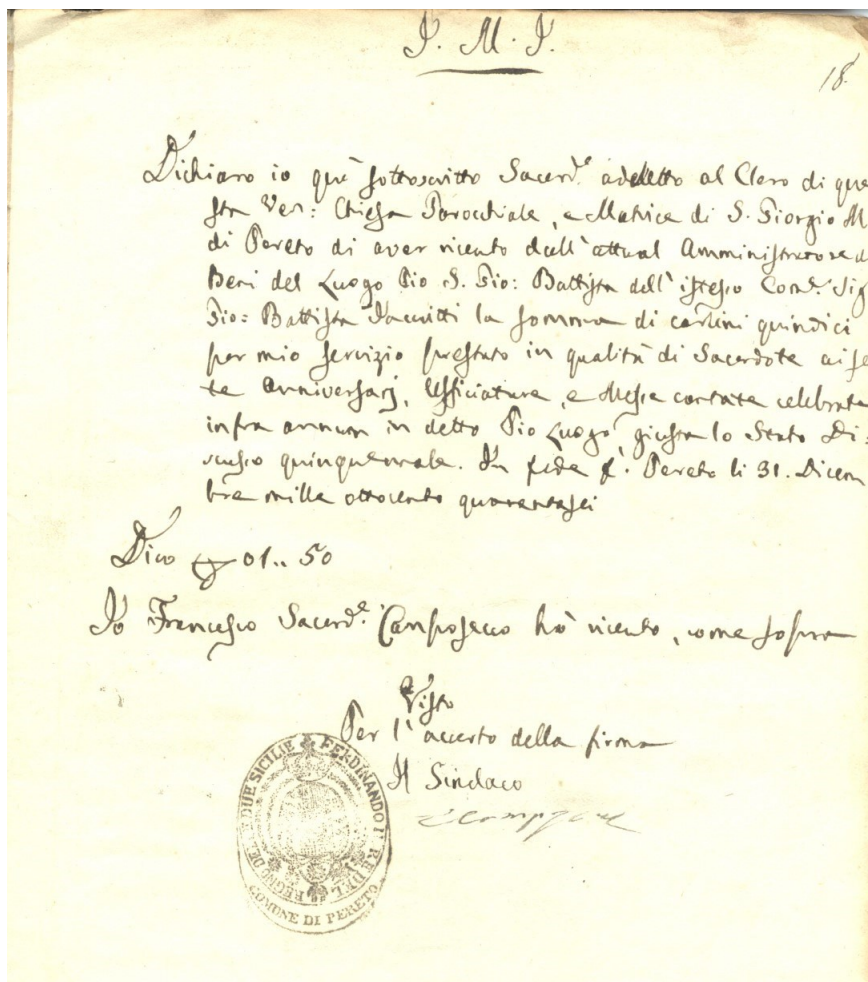 J. M. J.
18
Dichiaro io quì sottoscritto Sacerd.e addetto al Clero di que
sta Ven: Chiesa Parocchiale, e Matrice di S. Giorgio M
di Pereto di aver ricevuto dall'attual Amministratore d
Beni del Luogo Pio S. Gio: Battista dell'istesso Com.e Sig
Gio: Battista Iacuitti la somma di carlini quindici
per mio servizio prestato in qualità di Sacerdote ai se
te Anniversarj, Ufficiature, e Messe cantate celebrate
infra annum in detto Pio Luogo giusta lo Stato Di:
scusso quinquennale. In fede Pereto li 31. Dicem
bre mille ottocento quarantasei
Dico 01.. 50
Io Francesco Sacerd.e Camposecco hò ricevuto, come sopra
Visto
Per l'accerto della firma
Il Sindaco
FERDINANDO I° RE DEL REGNO DELLE DUE SICILIE
COMUNE DI PERETO